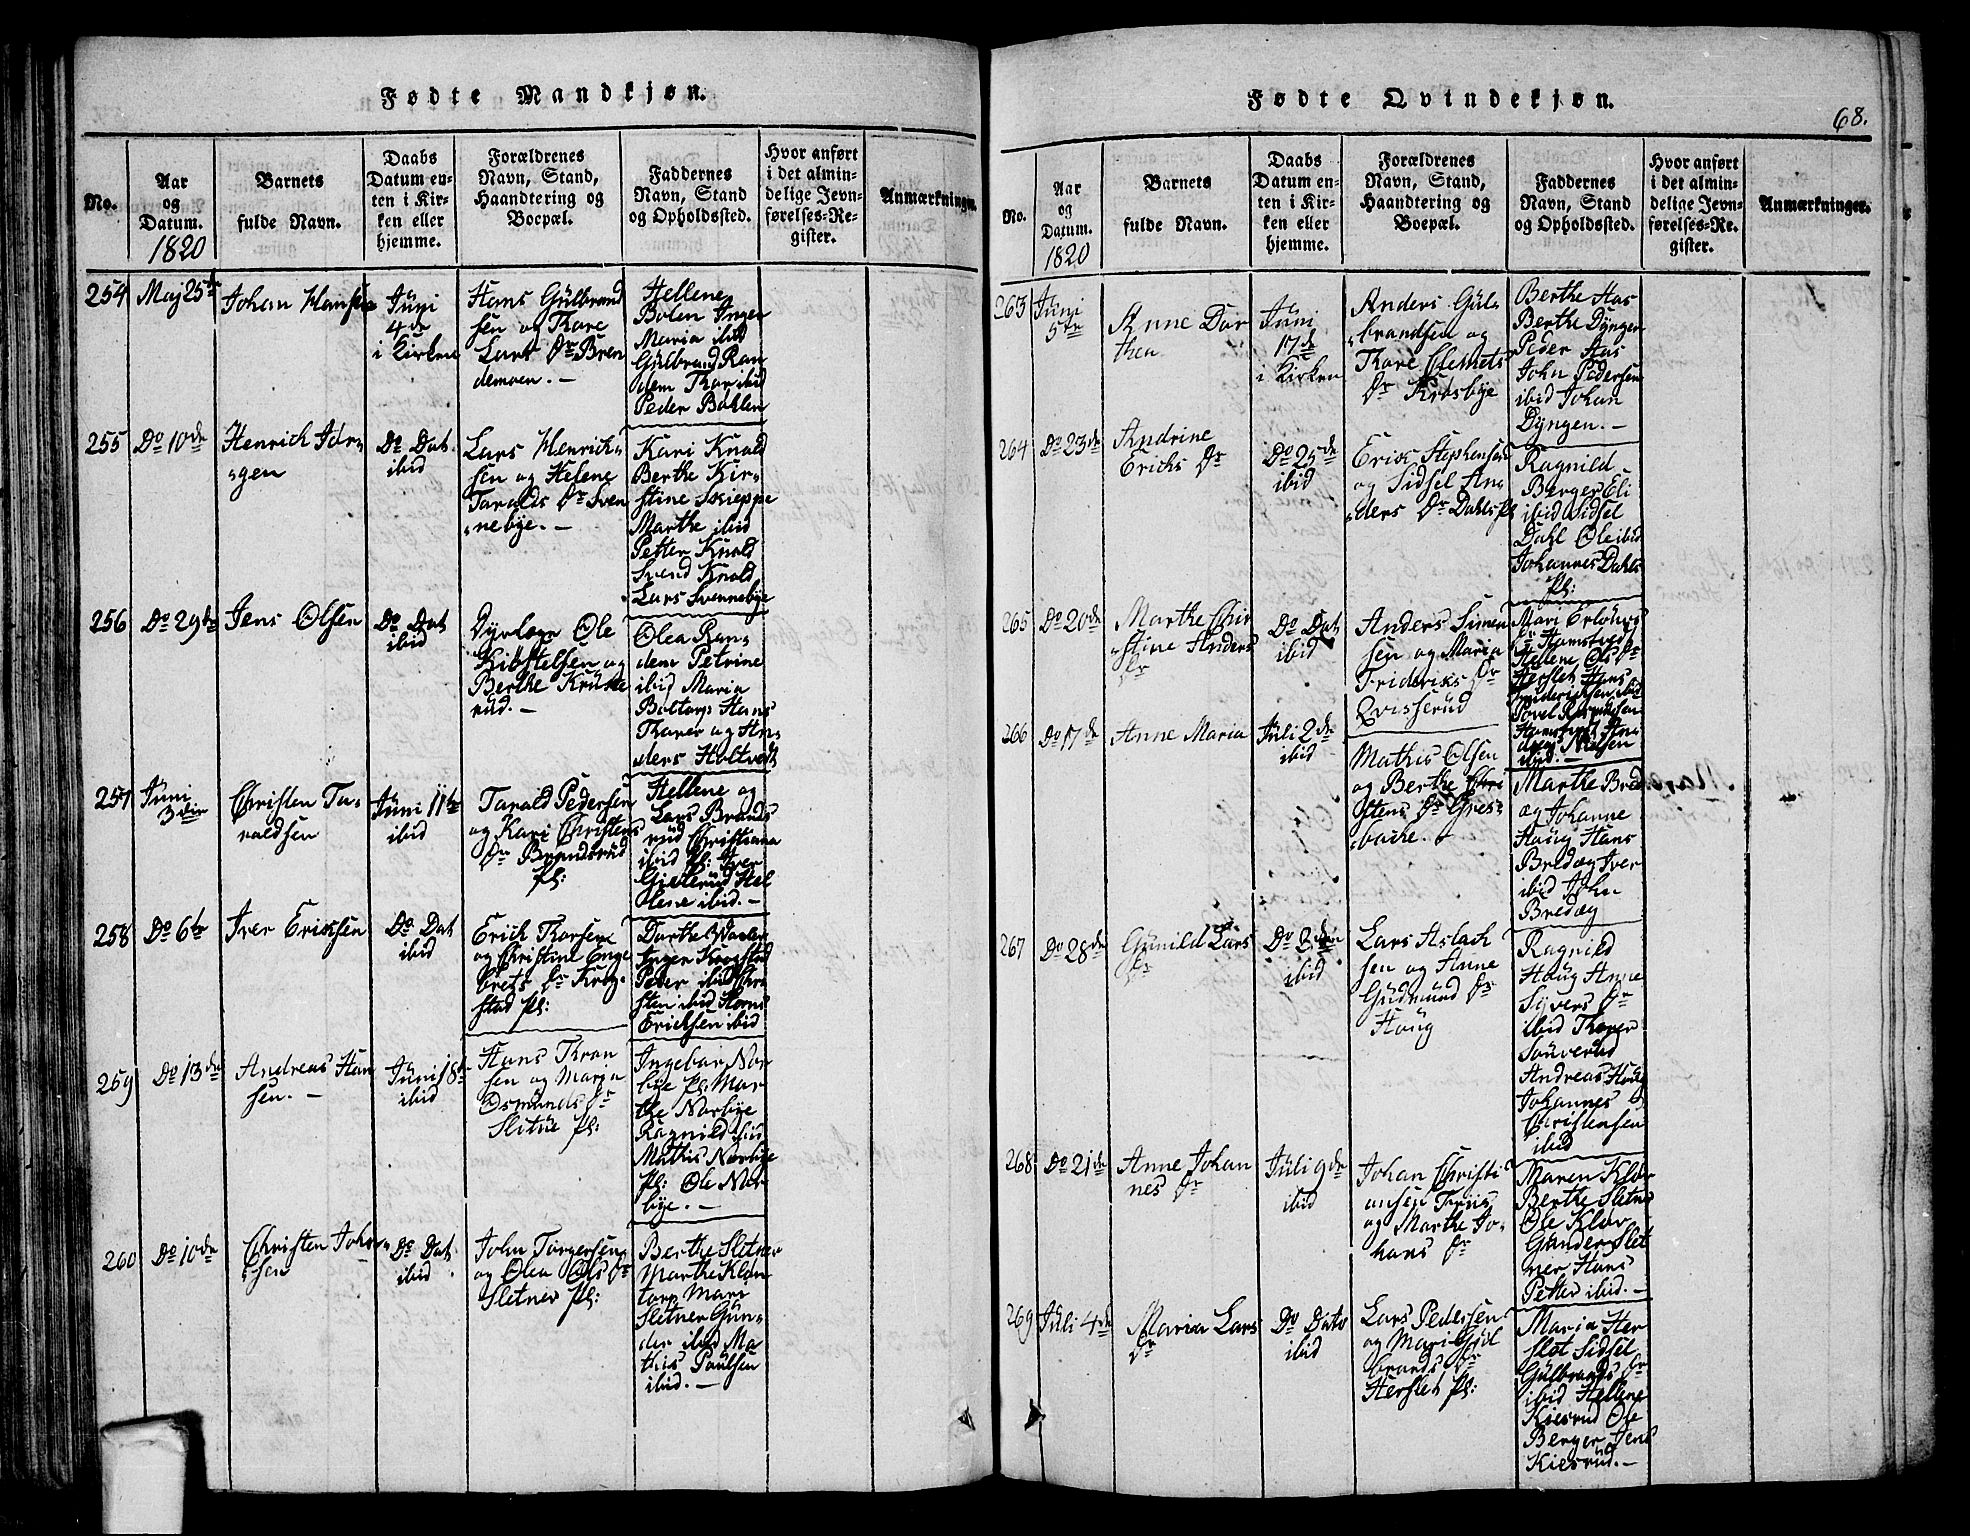 Fødte Mandkjøn.
No.
Aar
og
Datum.
1820
Barnets
fulde Navn.
Daabs
Datum en-
ten i Kir-
ken eller
hjemme.
Forældrenes
Navn, Stand,
Haandtering og
Boepæl.
Faddernes
Navn, Stand
og Opholdssted.
Hvor anført
i det almin-
delige Jevn-
førelses-Re-
gister.
Anmærkninger.
254
Maj 25de
Johan Hansen
Juni
4de
i Kirken
Hans Gulbrand
sen og Thore
Lars Dr Bren
demoen. —
Hellene
Bolen Inger
Maria ibid
Gulbrand Ran
dem Thor ibid
Peder Bohlen
255
Do 10de
Henrich Jør-
gen
Do Dat
ibid
Lars Henrich-
sen og Helene
Taralds Dr Sven
nebye. —
Kari Knold
Berthe Kir-
stine Skieppe
Marthe ibid
Petter Knold
Svend Knold
Lars Svennebye
256
Do 29de
Jens Olsen
Do Dat
ibid
Ole
og
Berthe
rud. —
Olea Ran-
dem Petrine
ibid Maria
Boltorp Hans
Thorer og An-
ders Holtvedt
257
Juni
3die
Christen Ta-
raldsen
Juni 11te
ibid
Tarald Pedersen
og Kari Christens
Dr Brandsrud
pl:
Hellene og
Lars Brands
rud Christiana
ibid pl: Iver
Gielerud Hel
lene ibid. —
258
Do 6te
Iver Eriksen
Do Dat
ibid
Erich Thorsen
og Christine Enge
brets Dr Krog-
stad pl:
Dorthe
Inger Krogstad
Peder ibid Chri
sten ibid
Ericksen ibid
259
Do 13de
Andreas Han
sen. —
Juni 18de
ibid
Hans Thron
sen og Maria
Osmunds Dr
Slitue pl:
Ingebor Nor
bye pl: Mar-
the Norbye
Ragnild ibid
Mathis Norbye
pl: Ole Nor-
bye. —
260
Do 10de
Christen Johan-
sen
Do Dat
ibid
John Torgersen
og Olea Ols Dr
Slitner pl:
Berthe Slitner
Marthe Klon
torp Mari
Slitner Gun-
der ibid Ma
this Paulsen
ibid. —
Fødte Qvindekjøn.
68.
No.
Aar
og
Datum.
1820
Barnets
fulde Navn.
Daabs
Datum en-
ten i Kir-
ken eller
hjemme.
Forældrenes
Navn, Stand,
Haandtering og
Boepæl.
Faddernes
Navn, Stand
og Opholdssted.
Hvor anført
i det almin-
delige Jevn-
førelses-Re-
gister.
Anmærkninger.
263
Juni
5te
Anne Dor
thea
Juni
17de
i Kirken
Anders Gul-
brandsen og
Thore Clemets
Dr Krosbye
Berthe Has
Berthe Dyngen
Peder Has
John Pedersen
ibid Johan
Dyngen. —
264
Do 23de
Andrine
Erichs Dr
Do 25de
ibid
Erik Stephensen
og Sidsel An-
ders Dr Dahls pl
Ragnild
Berger Eli
ibid Sidsel
Dahl Ole ibid
Johannes Dahls
pl:
265
Do 20de
Marthe Chri
stine Anders
Dr
Do Dat
ibid
Anders Simen
sen og Maria
Frideriks Dr
Qvisserud
Mari
Hellene Ols Dr
Herslet Hans
Friderichsen ibid
Povel
Nielsen
ibid. —
266
Do 17de
Anne Maria
Juli 2de
ibid
Mathis Olsen
og Berthe Chri
stens Dr Gres-
backe.
Marthe Bred
æg Johanne
Houg Hans
Bredæg Iver
ibid John
Bredæg
267
Do 28de
Gunild Lars
Dr
Do 2den
ibid
Lars Aslach
sen og Anne
Gudmund Dr
Houg
Ragnild
Houg Anne
Syvers Dr
ibid Thorer
Souverud
Andreas Houg
Johannes
Christensen
ibid
268
Do 21de
Anne Johan
nes Dr
Juli 9de
ibid
Johan Christi
ansen
og Marthe Jo-
hans Dr
Maren Klov
Berthe Slitner
Ole Klov
Gunder Slet
ner Hans
Petter ibid. —
269
Juli 4de
Maria Lars
Dr
Do Dato
ibid
Lars Pedersen
og Mari Gul
brands Dr
Herslet pl:
Maria Her
slet Sidsel
Gulbrands Dr
ibid Hellene
Kiesrud Ole
Berger Jens
Kiesrud. —